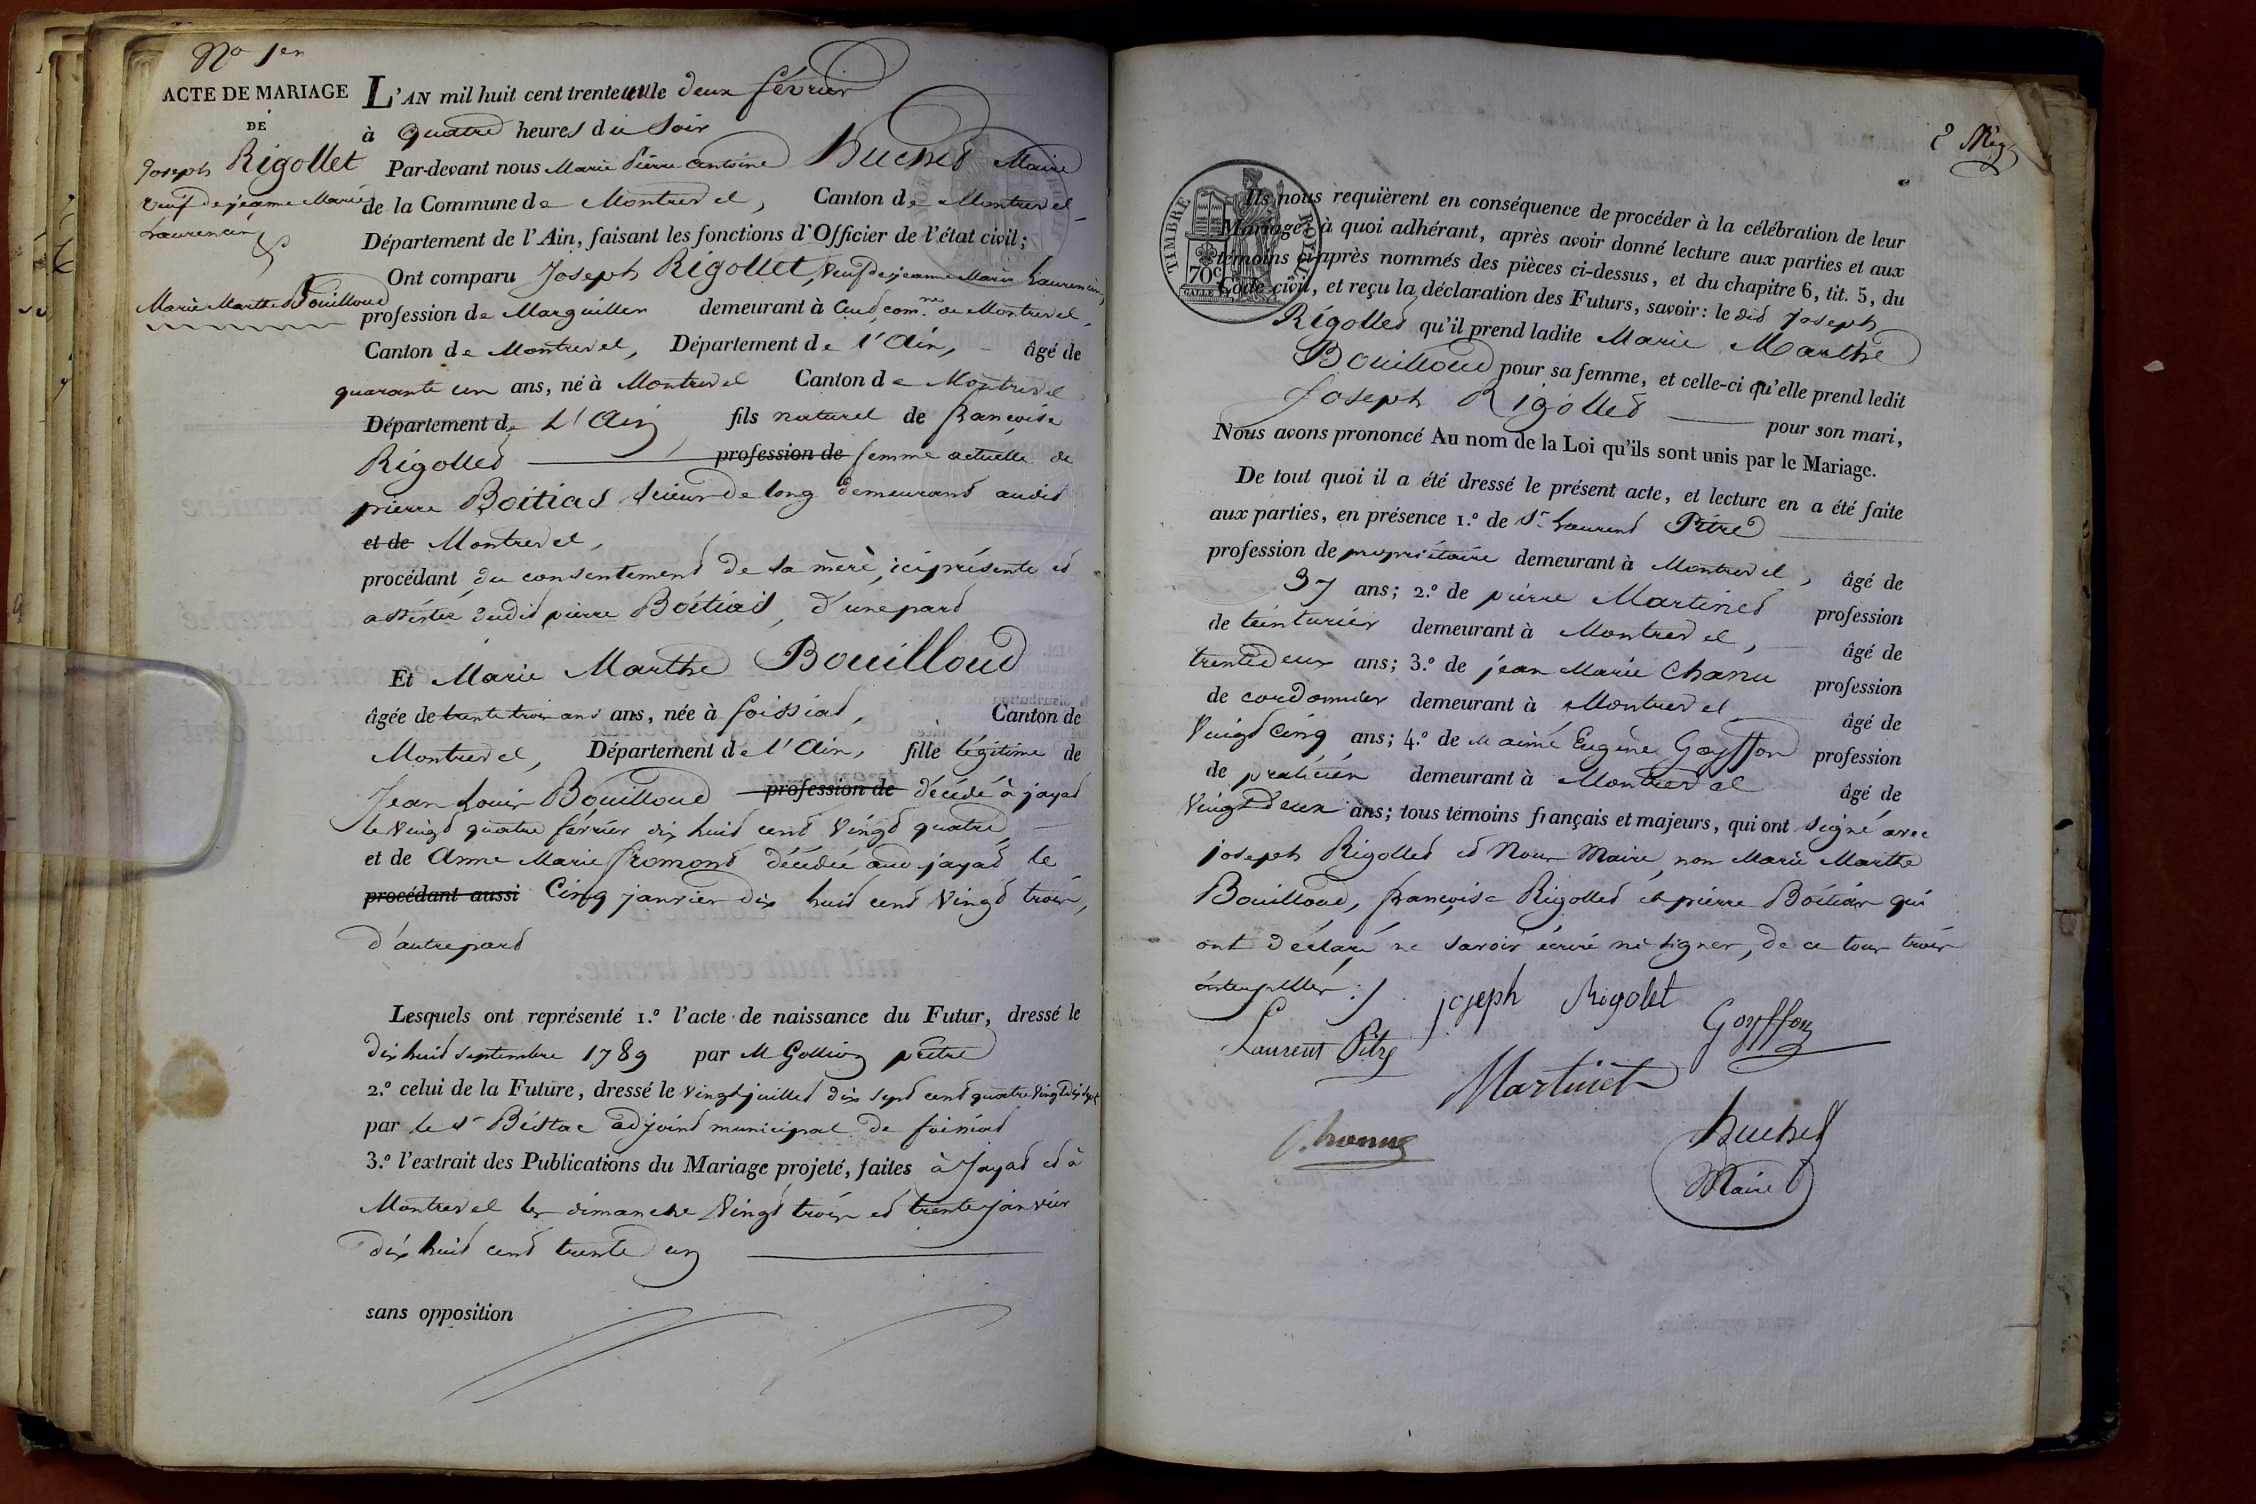 No 1er
ACTE DE MARIAGE
DE
Joseph Rigollet
veuf de jeanne Marie
Laurencin
&
Marie Marthe Bouilloud
L'AN mil huit cent trente un le deux février
à quatre heures du soir
Par-devant nous Marie Pierre Antoine Buchet Maire
de la Commune de Montrevel, Canton de Montrevel,
Département de l'Ain, faisant les fonctions d'Officier de l'état civil;
Ont comparu Joseph Rigollet, veuf de jeanne Marie Laurencin,
profession de Marguiller demeurant à Cuet, com.ne de Montrevel,
Canton de Montrevel, Département de l'Ain, âgé de
quarante un ans, né à Montrevel Canton de Montrevel
Département de L'Ain, fils naturel de françoise
Rigollet profession de femme actuelle de
pierre Boitias scieur de long demeurant audit
et de Montrevel,
procédant du consentement de sa mère, ici présente et
assistée dudit pierre Boitias, d'une part
Et Marie Marthe Bouilloud
âgée de trente trois ans ans, née à foissiat, Canton de
Montrevel, Département de l'Ain, fille légitime de
Jean Louis Bouilloud profession de décédé à jayat
le vingt quatre février dix huit cent vingt quatre
et de Anne Marie fromont décédée aud. jayat le
procédant aussi Cinq janvier dix huit cent vingt trois,
d'autre part
Lesquels ont représenté 1.º l'acte de naissance du Futur, dressé le
dix huit septembre 1789 par M Gollion prêtre
2.º celui de la Future, dressé le vingt juillet dix sept cent quatre vingt dix sept
par le Sr Béstac adjoint municipal de foissiat
3.º l'extrait des Publications du Mariage projeté, faites à Jayat et à
Montrevel les dimanche vingt trois et trente janvier
dix huit cent trente un
sans opposition
TIMBRE ROYAL
70c
GALLE
Ils nous requièrent en conséquence de procéder à la célébration de leur
Mariage, à quoi adhérant, après avoir donné lecture aux parties et aux
témoins ci-après nommés des pièces ci-dessus, et du chapitre 6, tit. 5, du
Code civil, et reçu la déclaration des Futurs, savoir: le dit Joseph
Rigollet qu'il prend ladite Marie Marthe
Bouilloud pour sa femme, et celle-ci qu'elle prend ledit
Joseph Rigollet pour son mari,
Nous avons prononcé Au nom de la Loi qu'ils sont unis par le Mariage.
De tout quoi il a été dressé le présent acte, et lecture en a été faite
aux parties, en présence 1.º de Sr Laurent Pitre
profession de propriétaire demeurant à Montrevel, âgé de
37 ans; 2.º de pierre Martinet profession
de teinturier demeurant à Montrevel, âgé de
trente deux ans; 3.º de jean Marie Chanu profession
de cordonnier demeurant à Montrevel âgé de
vingt cinq ans; 4.º de M aimé Eugène Goyffon profession
de praticien demeurant à Montrevel âgé de
vingt deux ans; tous témoins français et majeurs, qui ont signé avec
joseph Rigollet et Nous Maire, non Marie Marthe
Bouilloud, françoise Rigollet et pierre Boitias qui
ont déclaré ne savoir écrire ni signer, de ce tous trois
interpellés ./.
joseph Rigolet
Goyffon
Laurent Pitre
Martinet
Chanu
Buchet
Maire